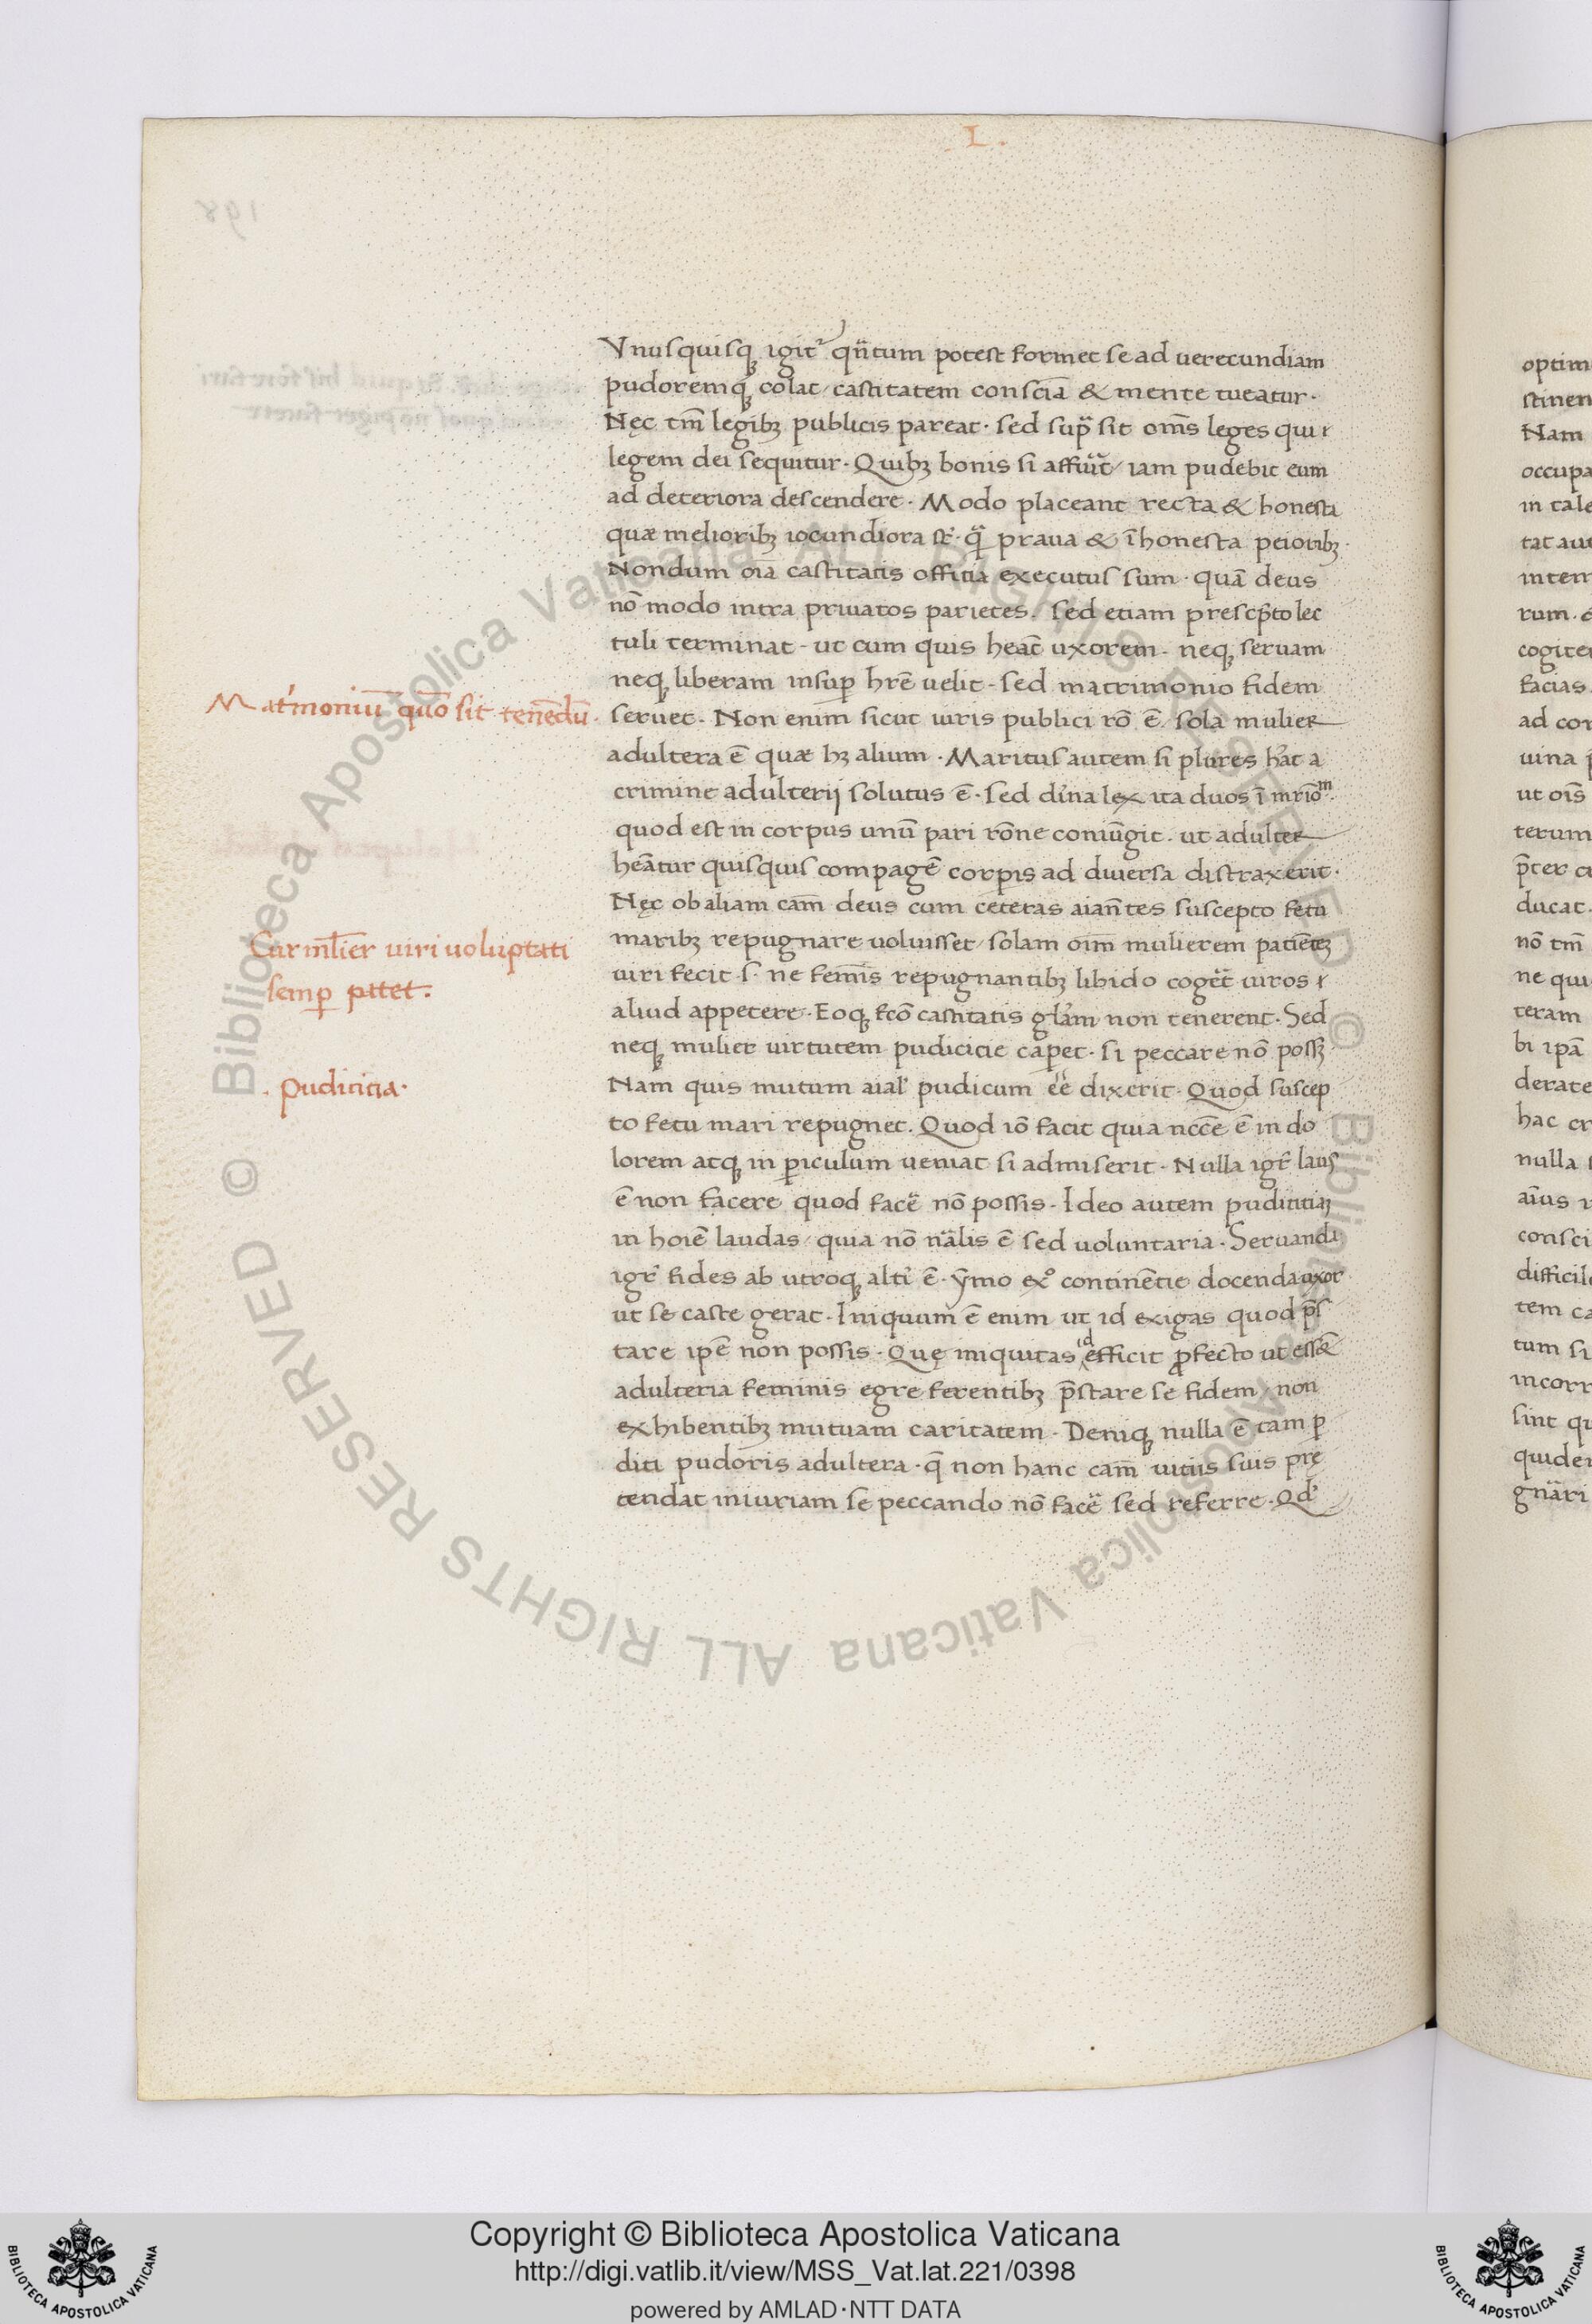 L.
Vnusquisqꝫ igit᷑ qn̄tum potest formet se ad uerecundiam
pudoremqꝫ colat/ castitatem conscīa & mente tueatur.
Nęc tm̄ legibꝫ publicis pareat. sed sup̄ sit om̄s leges qui
legem dei sequitur. Quibꝫ bonis si affūit/ iam pudebit eum
ad deteriora descendere. Modo placeant recta & honesta
quæ melioribꝫ iocundiora st̄. q̄ praua & īhonesta peioribꝫ.
Nondum oīa castitatis offitia executus sum. quā deus
nō modo intra priuatos parietes. sed etiam prescp̄to lec
tuli terminat. ut cum quis heat̄ uxorem. neqꝫ seruam
neqꝫ liberam insuꝑ hrē uelit. sed matrimonio fidem
Mat̓moniū quō sit tenēdū.
seruet. Non enim sicut iuris publici rō ē. sola mulier
adultera ē quæ hꝫ alium. Maritus autem si plures h̓at a
crimine adulterij solutus ē. sed diīna lex ita duos ī mr̄ioᵐ.
quod est in corpus unū pari rōne coniūgit. ut adulter
heātur quisquis compagē corꝑis ad diuersa distraxerit.
Nęc ob aliam cām deus cum ceteras aiantes suscepto fetu
Cur ml̄ier uiri uoluptati
semꝑ ptet.
maribꝫ repugnare uoluisset/ solam oim̄ mulierem patiētēꝫ
uiri fecit .s. ne femīs repugnantibꝫ libido coget̄ uiros
aliud appetere. Eoqꝫ fc̄o castitatis gl̓am non tenerent. Sed
neqꝫ mulier uirtutem pudicicie capet. si peccare nō possꝫ.
.pudititia.
Nam quis mutum aial̓ pudicum eē dixerit. Quod suscep
to fetu mari repugnet. Quod iō facit quia nccē ē in do
lorem atqꝫ in ꝑiculum ueniat si admiserit. Nulla igr̄ laus
ē non facere quod facē nō possis. Ideo autem pudititia
in hoiē laudas/ quia nō nālis ē sed uoluntaria. Seruanda
igr̄ fides ab utroqꝫ alti̓ ē. ȳmo ex̊ continētie docenda uxor
ut se caste gerat. Iniquum ē enim ut id exigas quod p̄s
tare ipē non possis. Quę iniquitas id efficit ꝓfecto ut ess&
adulteria feminis egre ferentibꝫ p̄stare se fidem/ non
exhibentibꝫ mutuam caritatem. Deniqꝫ nulla ē tam ꝑ
diti pudoris adultera. q̄ non hanc cām uitiis suis prę
tendat iniuriam se peccando nō facē sed referre. Qd̓
Copyright © Biblioteca Apostolica Vaticana
http://digi.vatlib.it/view/MSS_Vat.lat.221/0398
powered by AMLAD·NTT DATA